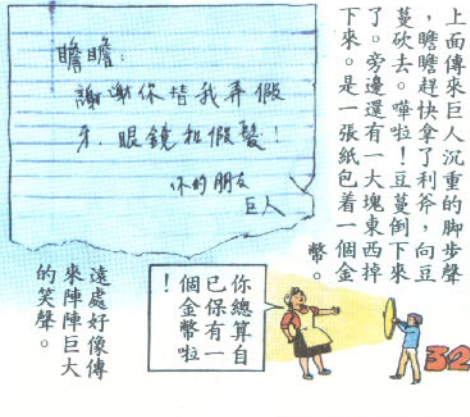 上面傳來巨人沉重的脚步聲
，瞻瞻趕快拿了利斧，向豆
蔓砍去。嘩啦！豆蔓倒下來
了。旁邊還有一大塊東西掉
下來。是一張紙包着一個金
幣。
瞻瞻：
謝謝你替我弄假
牙、眼鏡和假髮！
你的朋友
巨人
你總算自
已保有一
個金幣啦
！
遠處好像傳
來陣陣巨大
的笑聲。
32